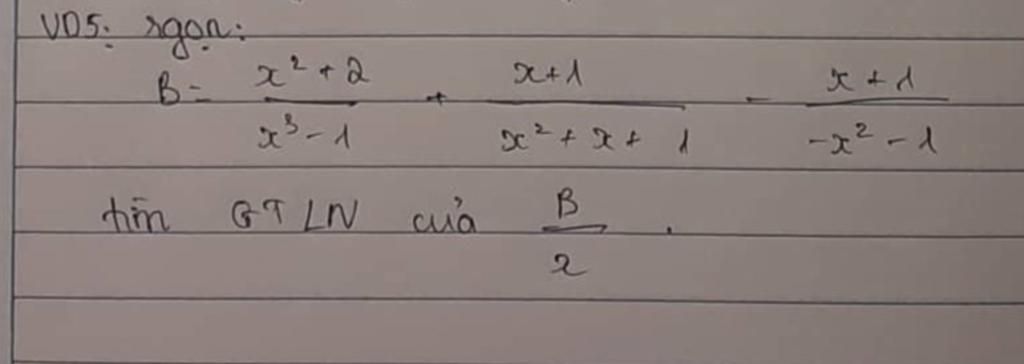 VD5: rgọn:
B = \frac{x^2+2}{x^3-1} + \frac{x+1}{x^2+x+1} - \frac{x+1}{-x^2-1}
tìm GTLN của \frac{B}{x} .